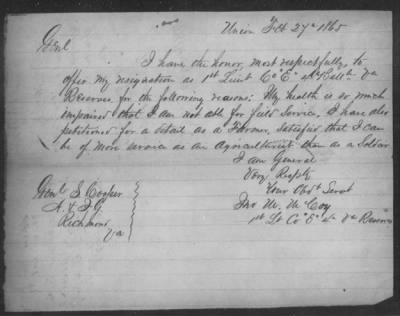 Union Feb 27th 1865
Genl
I have the honor, most respectfully, to
offer my resignation as 1st Lieut Co "E" 4th Batt Va
Reserves for the following reasons: My health is so much
impaired that I am not able for field Service, I have also
petitioned for a detail as a Farmer, satisfied that I can
be of more service as an Agriculturist than as a Soldier
I am General
Very Respty
Your Obdt Servt
Jno W. McCoy
1st Lt Co "E" 4th Va Reserves
Genl S. Cooper
A. & I. G.
Richmond
Va